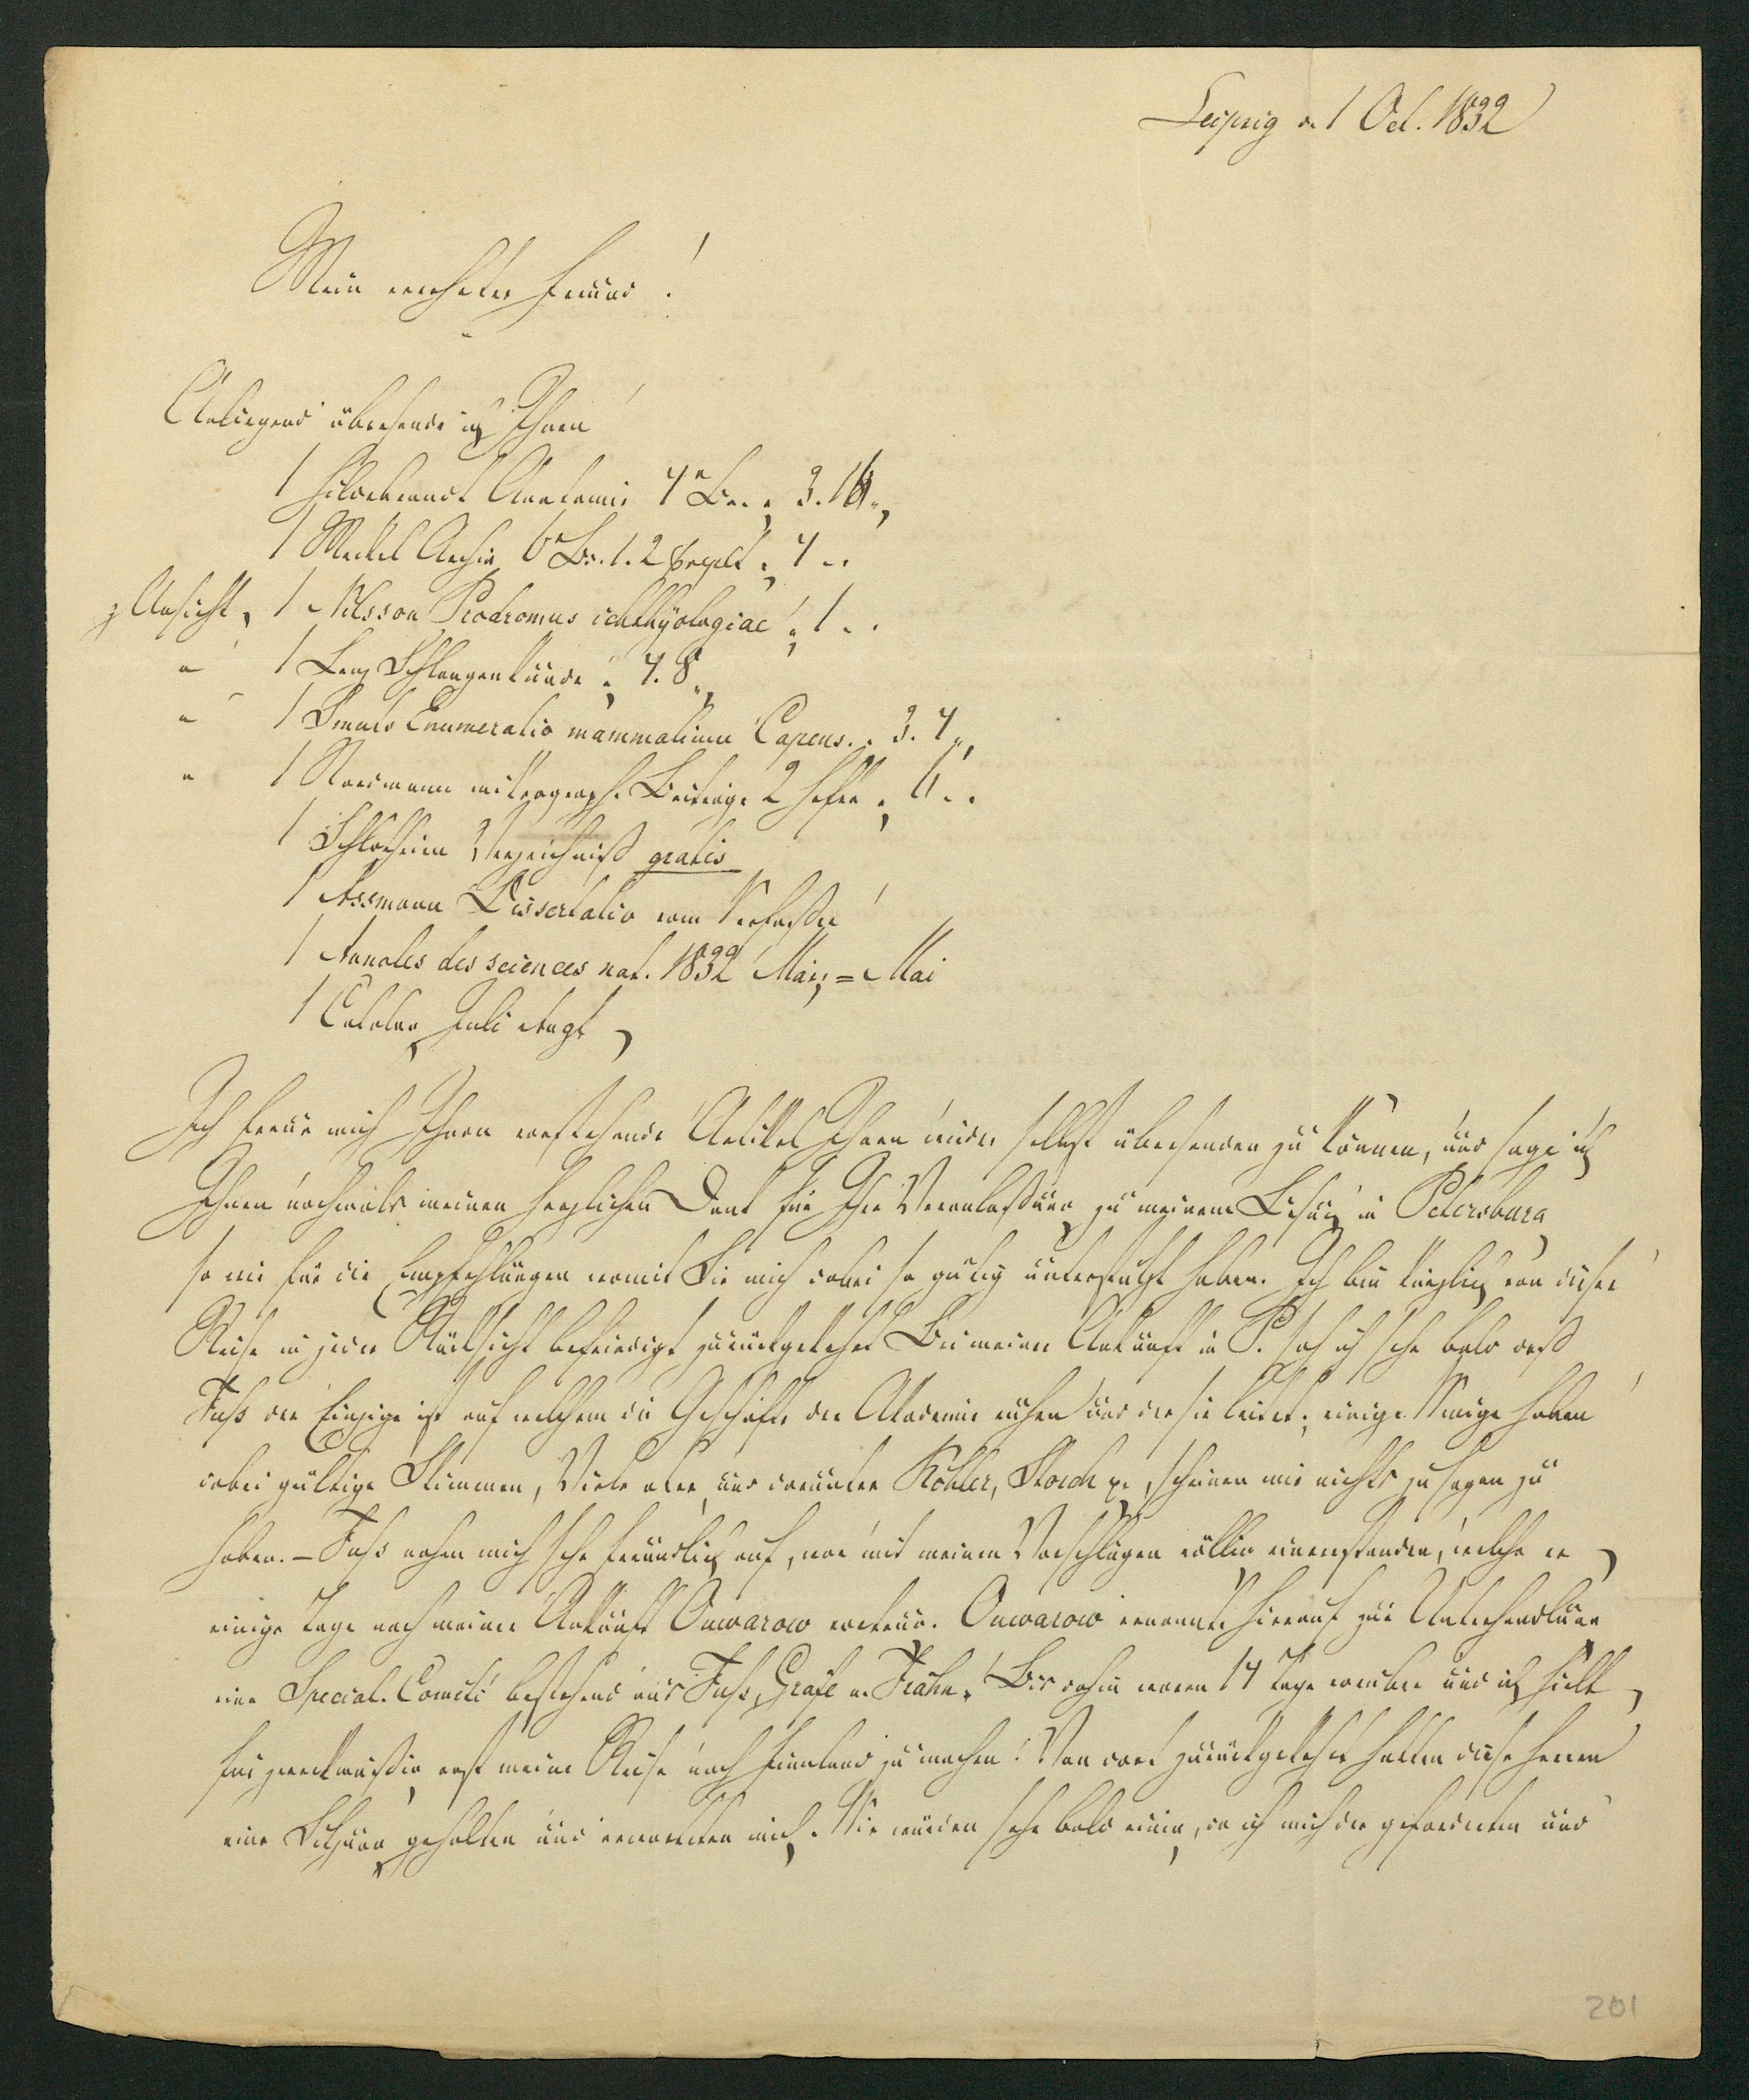 Leipzig d. 1 Oct. 1832
Mein verehrter Freund!
Anliegend übersende ich Ihnen
1 Hildebrandt Anatomie 4r Bd. 3. 16
1 Meckel Archiv 6r Bd. 1. 2 4 ..
z Ansicht, 1 Nilsson Prodromus ichthyologiae 1 ..
" 1 Lenz Schlangenkunde 4. 8
" 1 Smuts Enumeratio mammalium Capens. 3. 4
" 1 Nordmann mikrograph. Beiträge 2 Hefte 6 ..
1 Schlotheim Verzeichniß gratis
1 Assmann Dissertatio vom Verfaßer
1 Annales des sciences nat. 1832 März = Mai
1 Catalog Juli Augt
Ich freue mich Ihnen vorstehende Artikel Ihnen wieder selbst übersenden zu können, und sage ich
Ihnen nochmals meinen herzlichen Dank für Ihre Veranlaßung zu meinem Besuch in Petersburg
so wie für die Empfehlungen womit Sie mich dabei so gütig unterstützt haben. Ich bin kürzlich von dieser
Reise in jeder Rücksicht befriedigt zurückgekehrt Bei meiner Ankunft in P. sah ich sehr bald daß
Fuss der Einzige ist auf welchem die Geschäfte der Akademie ruhen und der sie leitet; einige Wenige haben
dabei gültige Stimmen, Viele aber, und darunter Köhler, Storch p., scheinen mir nichts zu sagen zu
haben. – Fuss nahm mich sehr freundlich auf, war mit meinen Vorschlägen völlig einverstanden, welche er
einige Tage nach meiner Ankunft Ouwarow vortrug. Ouwarow ernannte hierauf zur Unterhandlung
eine Special-Comité bestehend aus Fuss, Gräfe u. Frähn. Bis dahin waren 14 Tage vorüber und ich hielt
für zweckmäßig erst meine Reise nach Finnland zu machen. Von dort zurückgekehrt hatten diese Herren
eine Sitzung gehalten und erwarteten mich. Wir wurden sehr bald einig, da ich mich der geforderten und
201